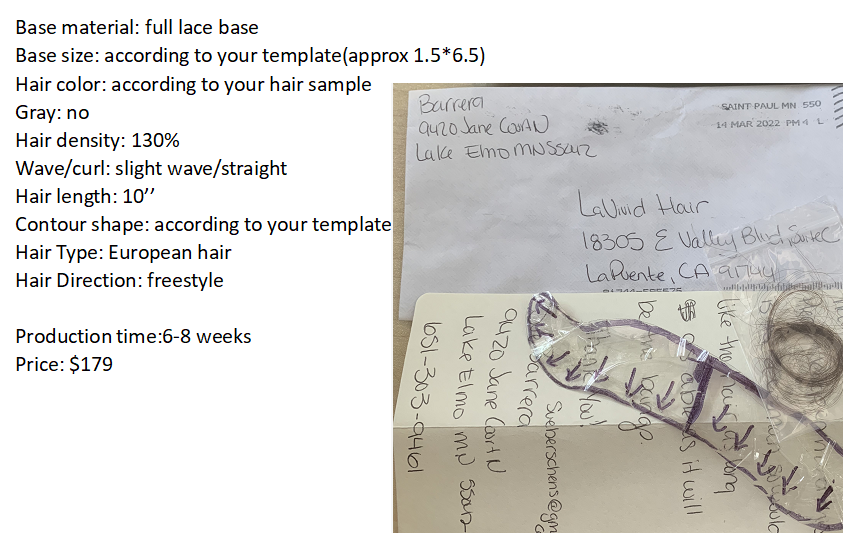 Base material: full lace base
Base size: according to your template(approx 1.5*6.5)
Hair color: according to your hair sample
Gray: no
Hair density: 130%
Wave/curl: slight wave/straight
Hair length: 10’’
Contour shape: according to your template
Hair Type: European hair
Hair Direction: freestyle
Production time:6-8 weeks
Price: $179
Barrera
9420 Jane Court N
Lake Elmo MN 55042
SAINT PAUL MN 550
14 MAR 2022 PM 4 L
LaVivid Hair
18305 E Valley Blvd, Suite C
La Puente, CA 91744
like the hair as long
as it will
be
you!
Barrera
9420 Jane Court N
Lake Elmo MN 55042
651-303-9461